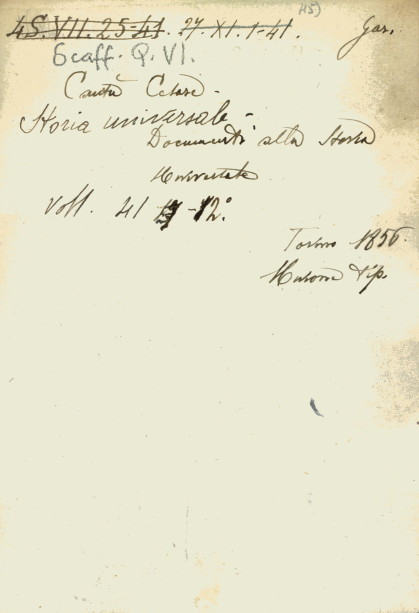 45)
4S.VII.25-41. 27.XI.1-41. Gar.
Scaff. Q. VI.
Cantù Cesare -
Storia universale -
Documenti alla Storia
Universale
Voll. 41 - 12°.
Torino 1856
tip.